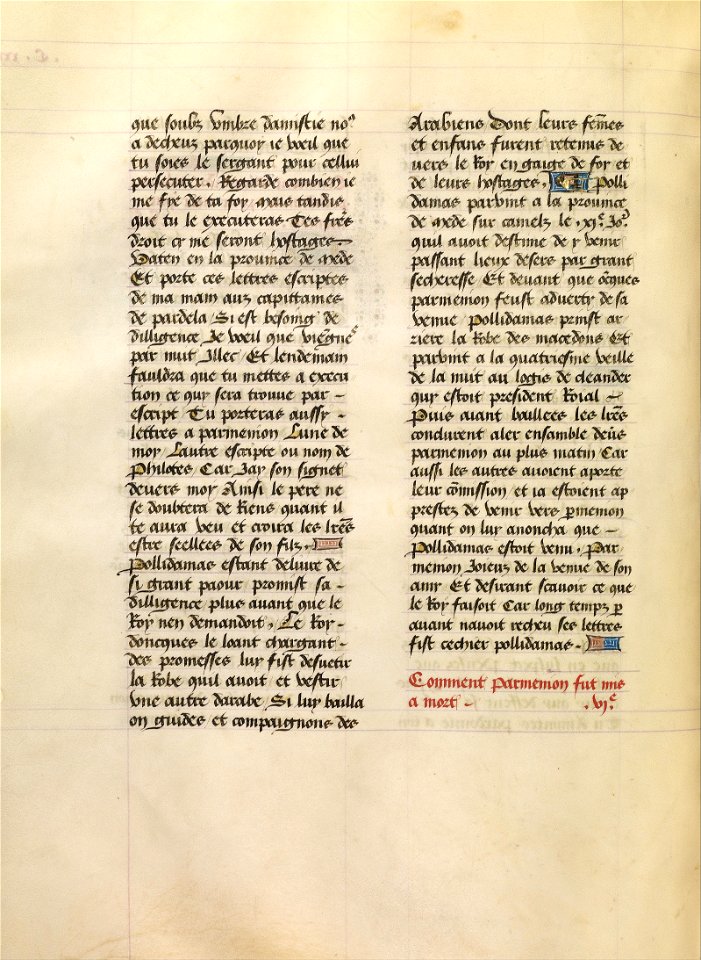 que soubz vmbre damistie noꝰ
a decheuz parquoy ie voeil que
tu soies le sergant pour cellui
persecuter. Regarde combien ie
me fye de ta foy mais tandis
que tu le executeras Tes fr̄es
droit cy me seront hostages
Vaten en la prouince de mede
Et porte ces lettres escriptes
de ma main aux capittaines
de pardela Si est besoing de
dilligence Je voeil que viengneꝰ
par nuit Illec Et lendemain
fauldra que tu mettes a execu
tion ce quy sera trouue par
escript Tu porteras aussy
lettres a parmenion Lune de
moy Lautre escripte ou nom de
Philotes Car Jay son signet
deuers moy Ainsi le pere ne
se doubtera de Riens quant il
te aura veu et croira les lr̄es
estre seellees de son filz.
Pollidamas estant deliure de
si grant paour promist sa
dilligence plus auant que le
Roy nen demandoit. Le Roy
doncques le loant chargant
des promesses luy fist desuetir
la Robe quil auoit et vestir
vne autre darabe Si luy bailla
on guides et compaignons des
Arabiens Dont leurs fem̄es
et enfans furent retenus de
uers le Roy en gaige de foy et
de leurs hostages. Polli
damas paruint a la prouince
de mede sur camelz le .xi.ᵉ Joꝰ
quil auoit destine de y venir
passant lieux desers par grant
secheresse Et deuant que oncques
parmenion feust aduerty de sa
venue Pollidamas prinst ar
riere la Robe des macedons Et
paruint a la quatriesme veille
de la nuit au logis de cleander
quy estoit president Roial
Puis auant baillees les lr̄es
conclurent aler ensamble deuers
parmenion au plus matin Car
aussi les autres auoient aporte
leur com̄ission et ia estoient ap
prestez de venir vers ꝑmenion
quant on luy anoncha que
Pollidamas estoit venu. Par
menion Joieux de la venue de son
amy Et desirant scauoir ce que
le Roy faisoit Car long temps ꝑ
auant nauoit recheu ses lettres
fist cerchier pollidamas.
Comment parmenion fut mis
a mort .vi.ᵉ